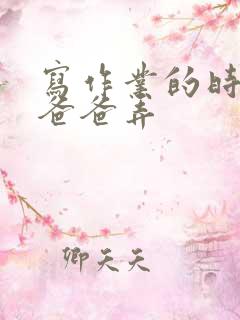 寫作業的時
爸爸弄
卿天天